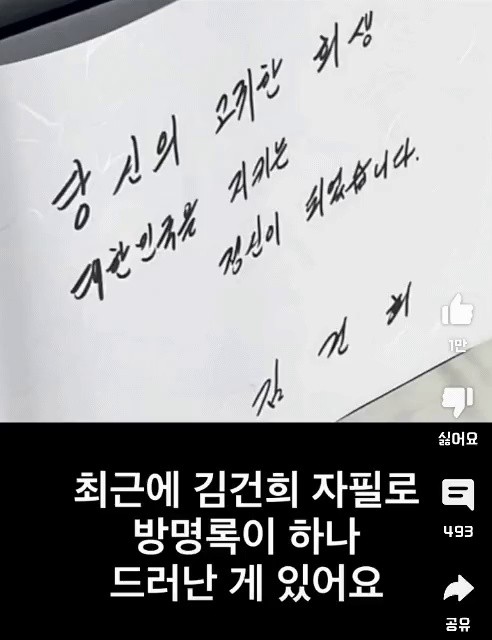 당신의 고귀한 희생
대한민국을 지키는
정신이 되었습니다.
김건희
1만
싫어요
493
공유
최근에 김건희 자필로
방명록이 하나
드러난 게 있어요